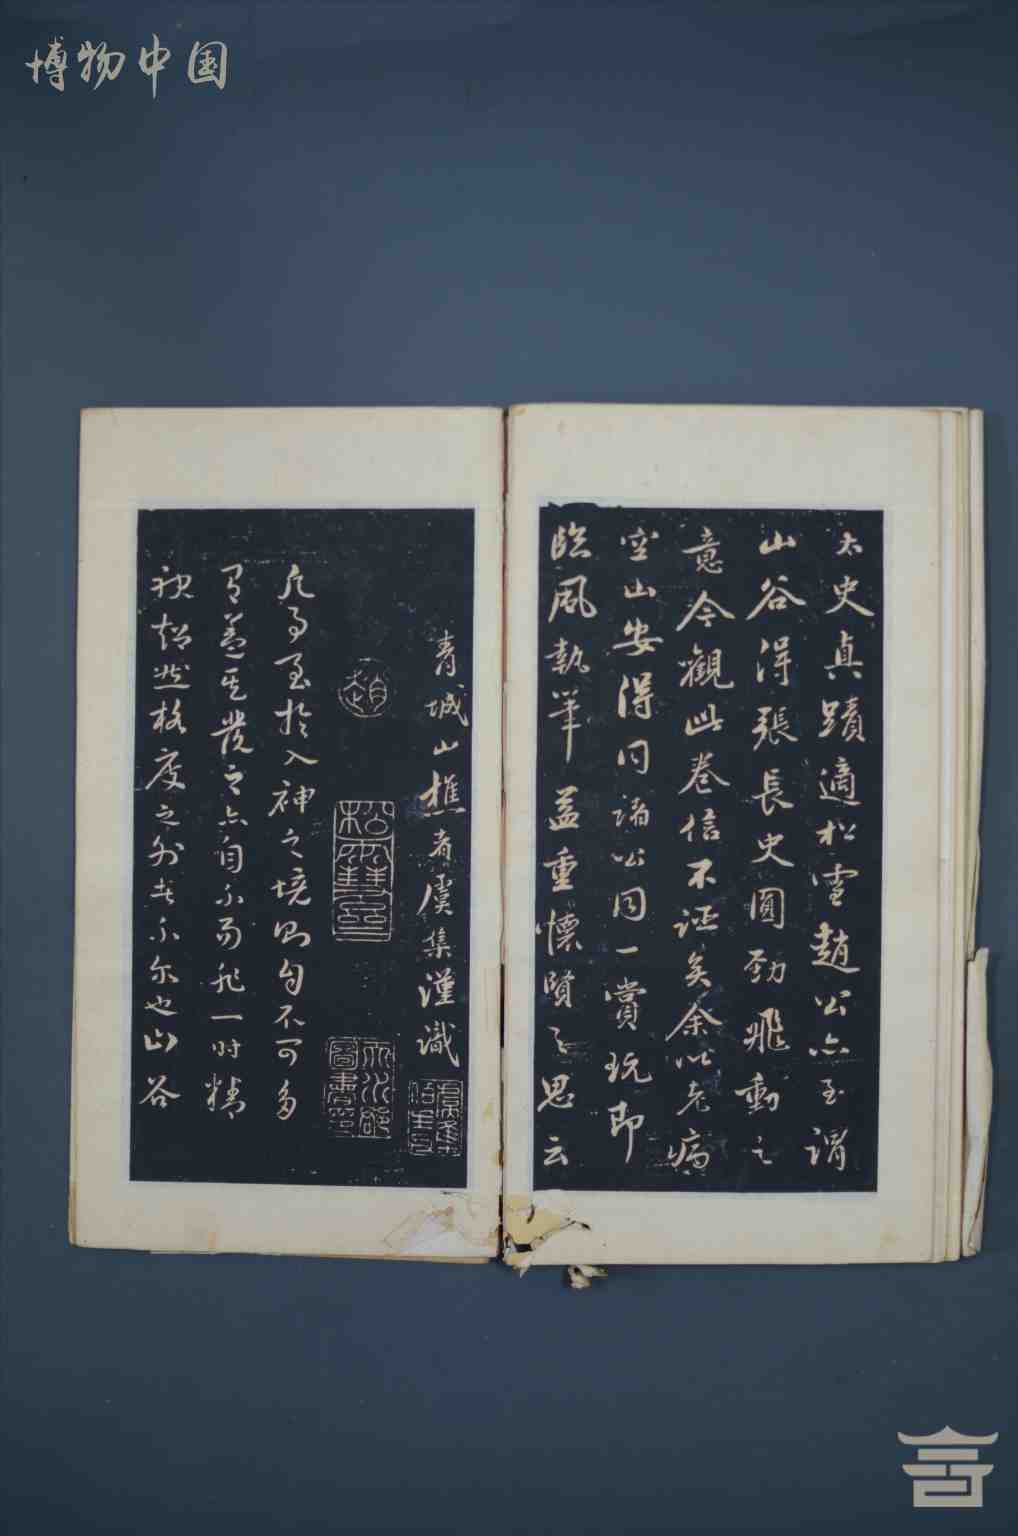 博物中国
太史真蹟適松雪趙公亦至謂
山谷得張長史圓勁飛動之
意今觀此卷信不誣矣余以老病
空山安得同諸公同一賞玩即
臨風執筆益重懷賢之思云
青城山樵者虞集謹識
趙
凡事至於入神之境則自不可多
有蓋其發之亦自不易非一時精
神超然格度之外者不尔也山谷